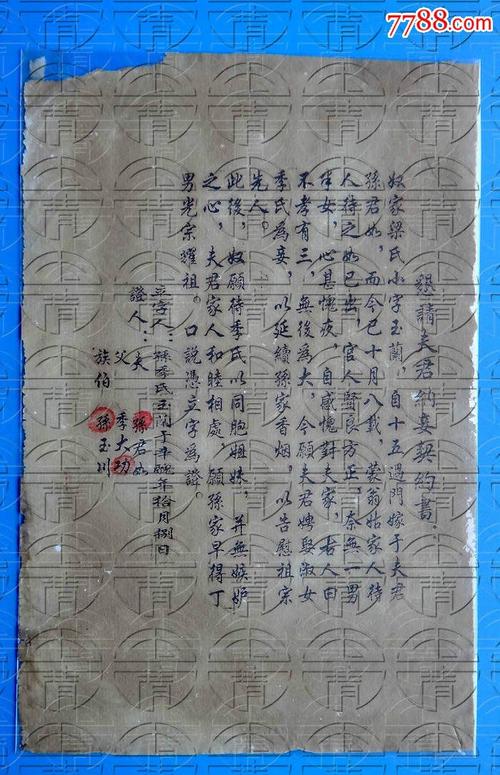 7788.com
懇請夫君納妾契約書：
奴家梁氏小字玉蘭，自十五過門嫁于夫君
孫君如，而今已十月八載，蒙翁姑家人待
人待之如已出，官人賢良方正，奈無一男
半女，心甚愧疚，自感愧對夫家，古人曰
不孝有三，無後為大，今願夫君娉娶淑女
季氏為妾，以延續孫家香烟，以告慰祖宗
先人。
此後，奴願待季氏以同胞姐妹，并無嫉妒
之心，夫君家人和睦相處，願孫家早得丁
男光宗耀祖。口說憑立字為證。
立字人：孫季氏玉蘭于辛 年拾月捌日
證人：夫 孫君如
父 季大功
族伯 孫玉川